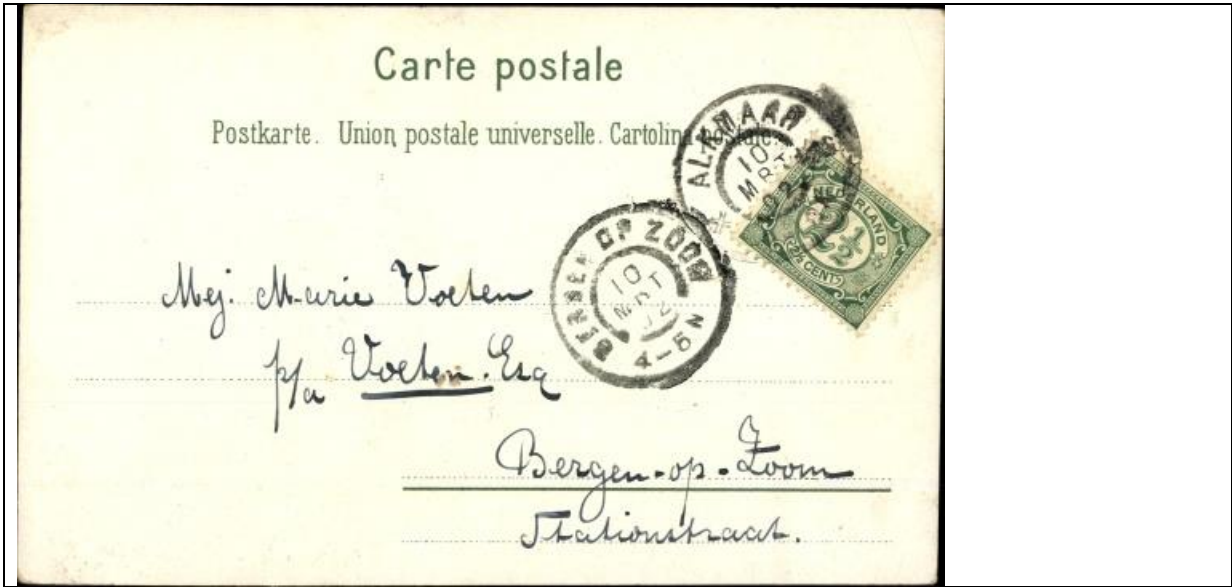 Carte postale
Postkarte. Union postale universelle. Cartolina postale.
ALKMAAR
10
MRT
NEDERLAND
2½
(2½ CENT)
BERGEN OP ZOOM
10
MRT
02
4-5N
Mej. Marie Voeten
p/a Voeten. Esq
Bergen-op-Zoom
Stationstraat.